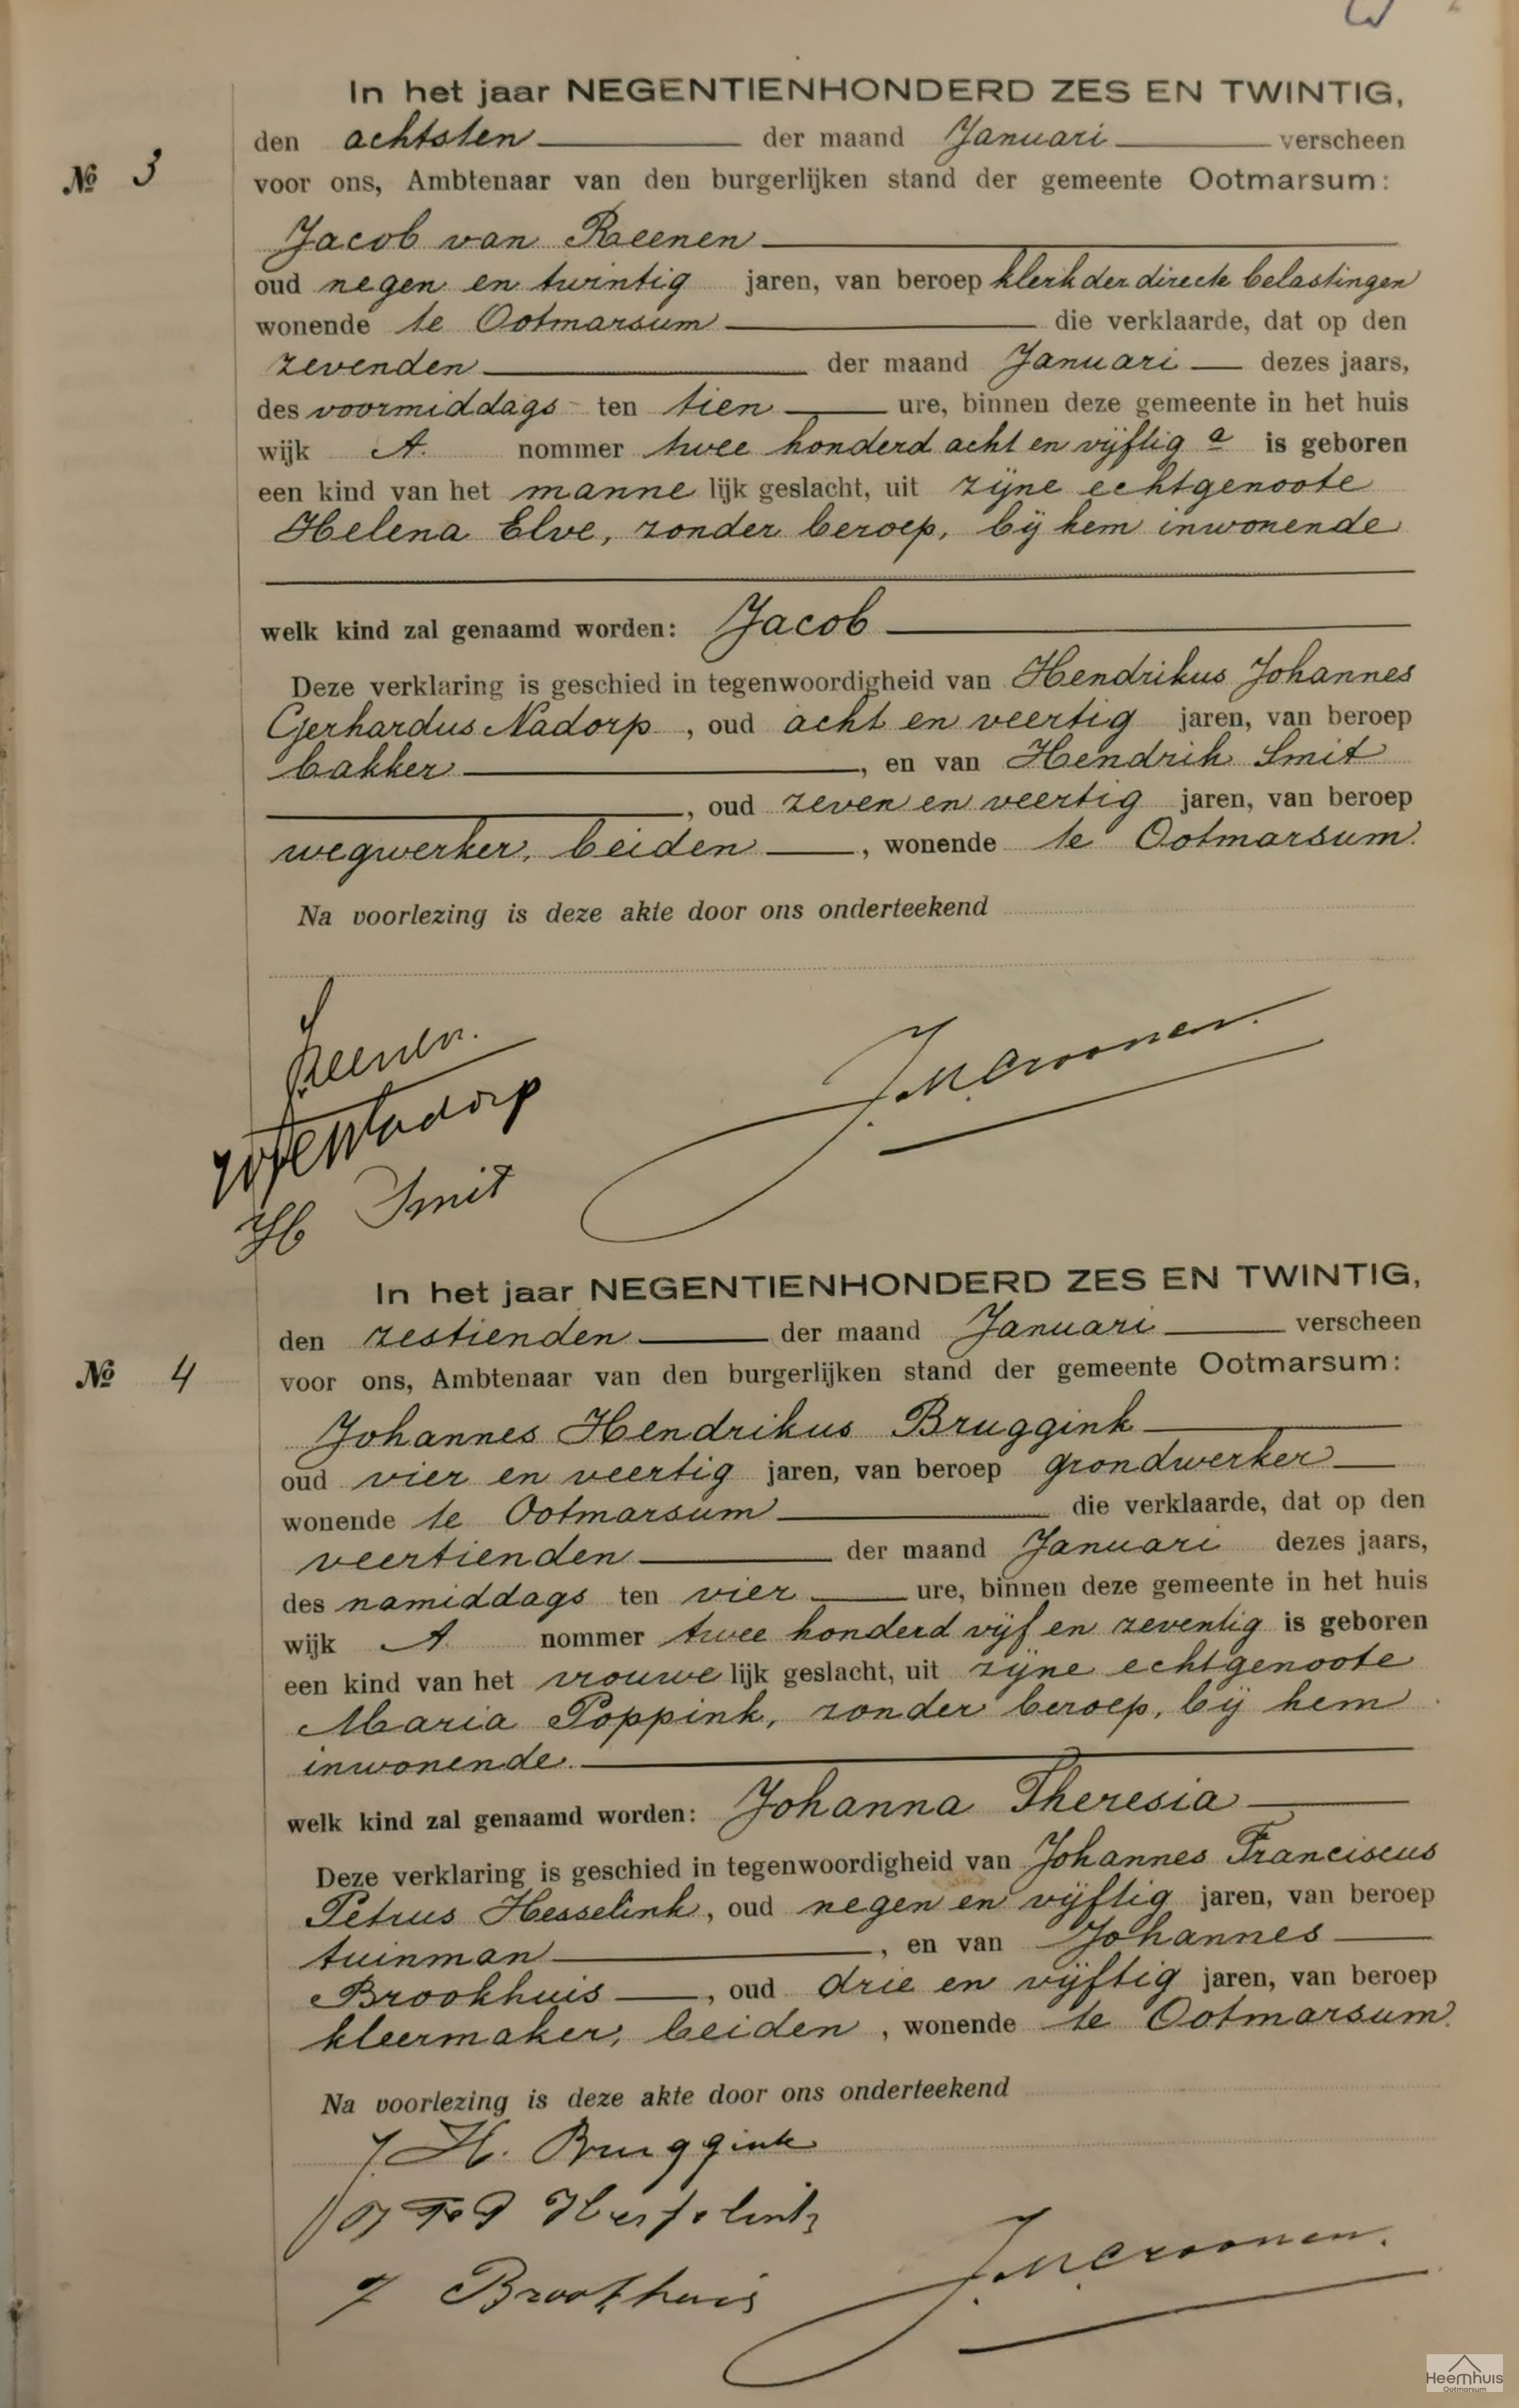 In het jaar NEGENTIENHONDERD ZES EN TWINTIG,
den achtsten der maand Januari verscheen
No 3
voor ons, Ambtenaar van den burgerlijken stand der gemeente Ootmarsum:
Jacob van Reenen
oud negen en twintig jaren, van beroep klerk der directe belastingen
wonende te Ootmarsum die verklaarde, dat op den
zevenden der maand Januari dezes jaars,
des voormiddags ten tien ure, binnen deze gemeente in het huis
wijk A. nommer twee honderd acht en vijftig a is geboren
een kind van het mannelijk geslacht, uit zijne echtgenoote
Helena Elve, zonder beroep, bij hem inwonende
welk kind zal genaamd worden: Jacob
Deze verklaring is geschied in tegenwoordigheid van Hendrikus Johannes
Gerhardus Nadorp, oud acht en veertig jaren, van beroep
bakker, en van Hendrik Smit
, oud zeven en veertig jaren, van beroep
wegwerker, beiden, wonende te Ootmarsum.
Na voorlezing is deze akte door ons onderteekend
Reenen.
Nadorp
H Smit
In het jaar NEGENTIENHONDERD ZES EN TWINTIG,
den zestienden der maand Januari verscheen
No 4
voor ons, Ambtenaar van den burgerlijken stand der gemeente Ootmarsum:
Johannes Hendrikus Bruggink
oud vier en veertig jaren, van beroep grondwerker
wonende te Ootmarsum die verklaarde, dat op den
veertienden der maand Januari dezes jaars,
des namiddags ten vier ure, binnen deze gemeente in het huis
wijk A nommer twee honderd vijf en zeventig is geboren
een kind van het vrouwelijk geslacht, uit zijne echtgenoote
Maria Poppink, zonder beroep, bij hem
inwonende.
welk kind zal genaamd worden: Johanna Theresia
Deze verklaring is geschied in tegenwoordigheid van Johannes Franciscus
Petrus Hesselink, oud negen en vijftig jaren, van beroep
tuinman, en van Johannes
Brookhuis, oud drie en vijftig jaren, van beroep
kleermaker, beiden, wonende te Ootmarsum.
Na voorlezing is deze akte door ons onderteekend
J. H. Bruggink
J Brookhuis
Heemhuis
Ootmarsum